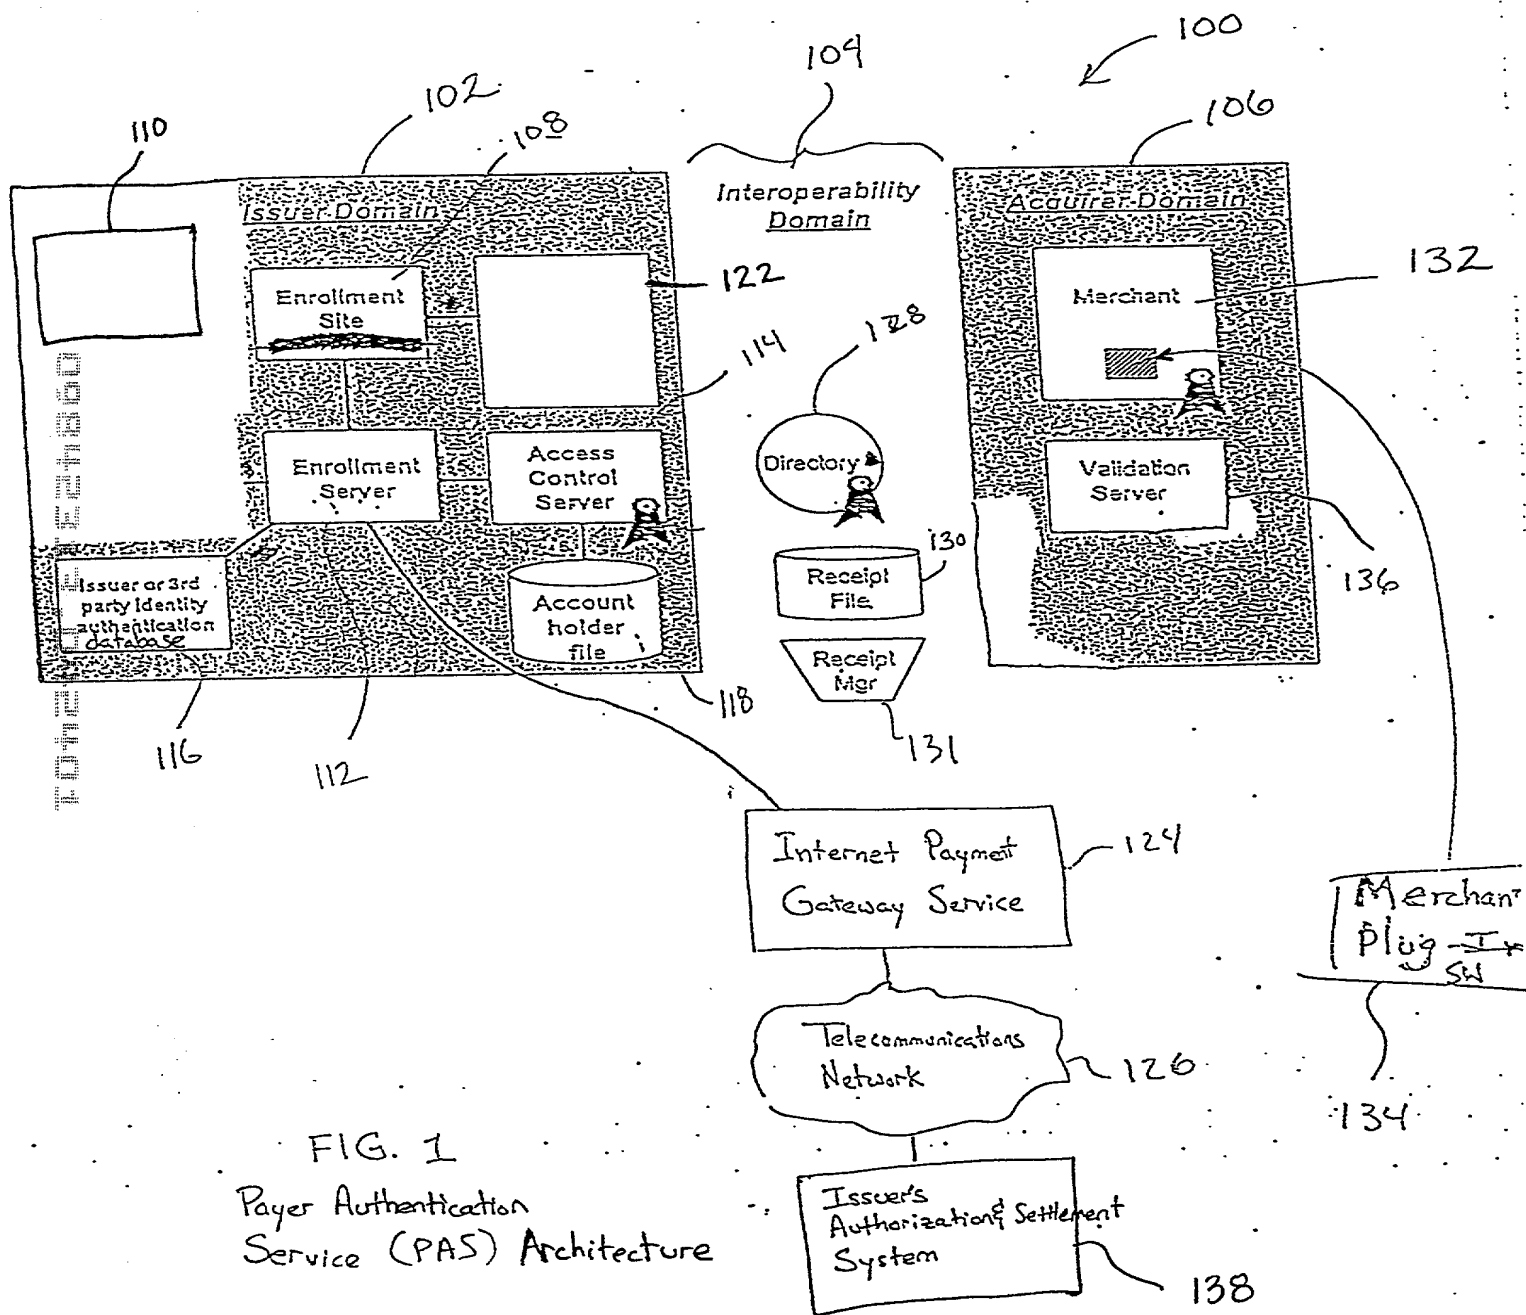 100
104
102
106
108
110
Issuer Domain
Interoperability
Domain
Acquirer Domain
122
132
Enrollment
Site
Merchant
128
114
Enrollment
Server
Access
Control
Server
Directory
Validation
Server
130
Receipt
File
136
Issuer or 3rd
party identity
authentication
database
Account
holder
file
Receipt
Mgr
118
116
112
131
Internet Payment
Gateway Service
124
Merchant
Plug-In
SW
134
Telecommunications
Network
126
FIG. 1
Payer Authentication
Service (PAS) Architecture
Issuer's
Authorization & Settlement
System
138